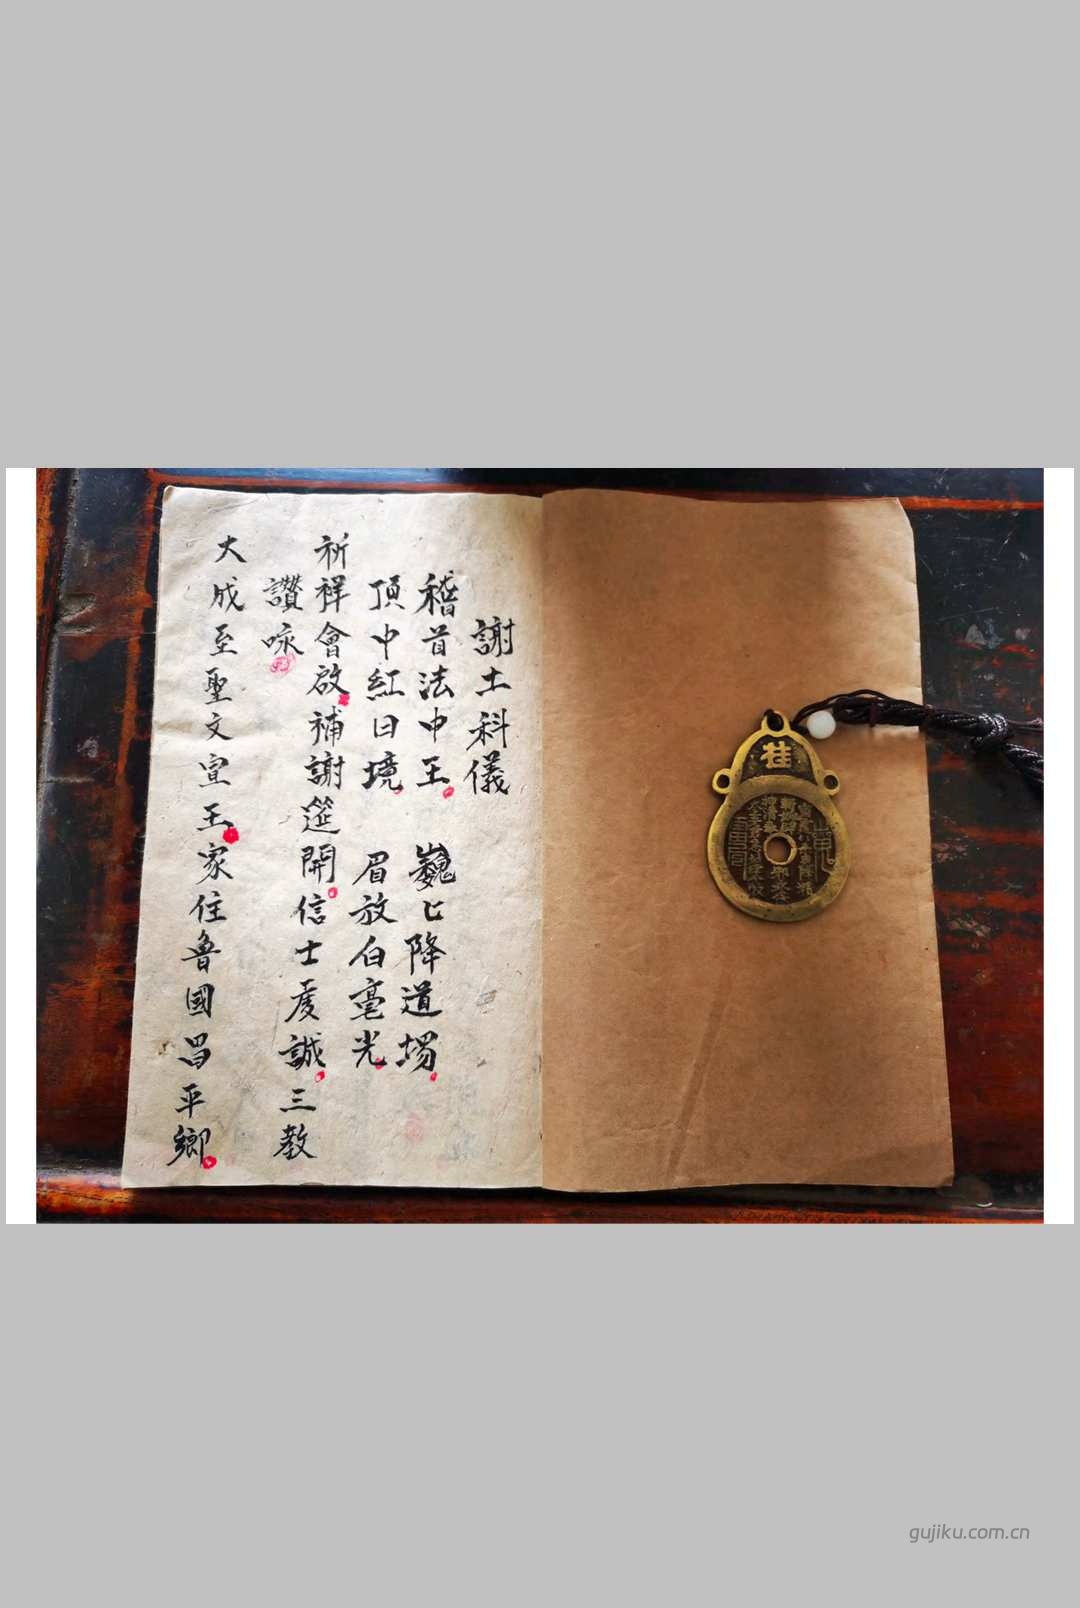 謝土科儀
稽首法中王 巍〻降道場
頂中紅日境 眉放白毫光
祈祥會啟補謝筵開信士虔誠三教
讚咏
大成至聖文宣王家住魯國昌平鄉
gujiku.com.cn